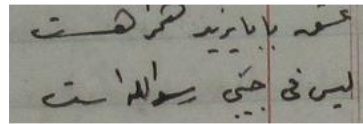 عشق با بایزید همراهست
لیس فی جبتی رسول‌الله است